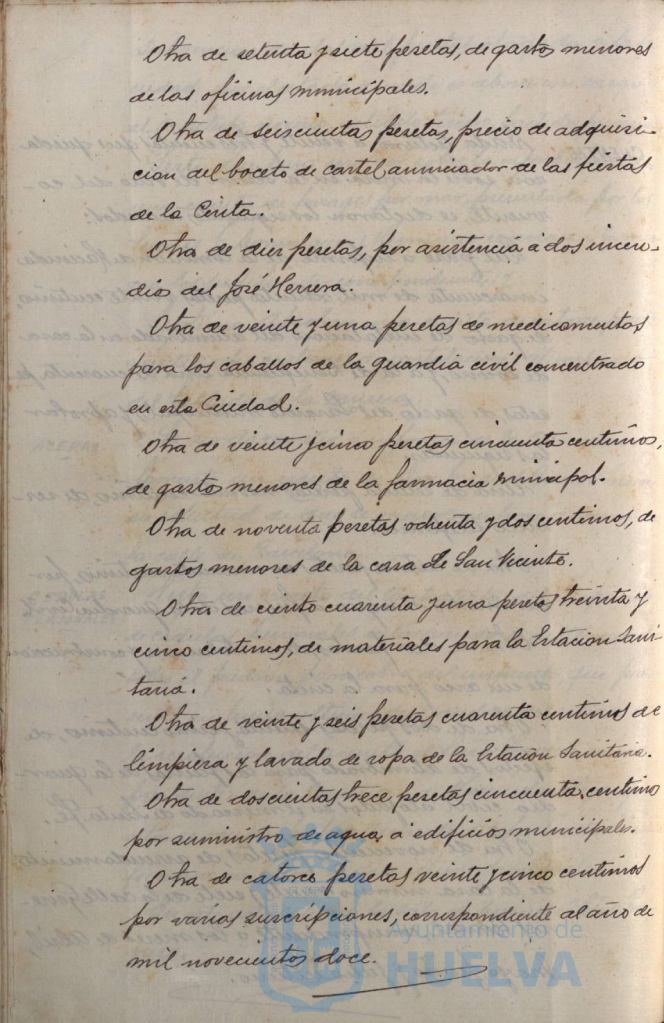 Otra de setenta y siete pesetas, de gastos menores
de las oficinas municipales.
Otra de seiscientas pesetas, precio de adquisi-
cion del boceto de cartel anunciador de las fiestas
de la Cinta.
Otra de diez pesetas, por asistencia á dos incen-
dios del José Herrera.
Otra de veinte y una pesetas de medicamentos
para los caballos de la guardia civil concentrado
en esta Ciudad.
Otra de veinte y cinco pesetas cincuenta centimos,
de gastos menores de la farmacia municipal.
Otra de noventa pesetas ochenta y dos centimos, de
gastos menores de la casa de San Vicente.
Otra de ciento cuarenta y una pesetas treinta y
cinco centimos, de materiales para la Estacion Sani-
taria.
Otra de veinte y seis pesetas cuarenta centimos de
limpieza y lavado de ropa de la Estación Sanitaria.
Otra de doscientas trece pesetas cincuenta centimos
por suministro de agua á edificios municipales.
Otra de catorce pesetas veinte y cinco centimos
por varias suscripciones, correspondiente al año de
mil novecientos doce.
Ayuntamiento de
HUELVA